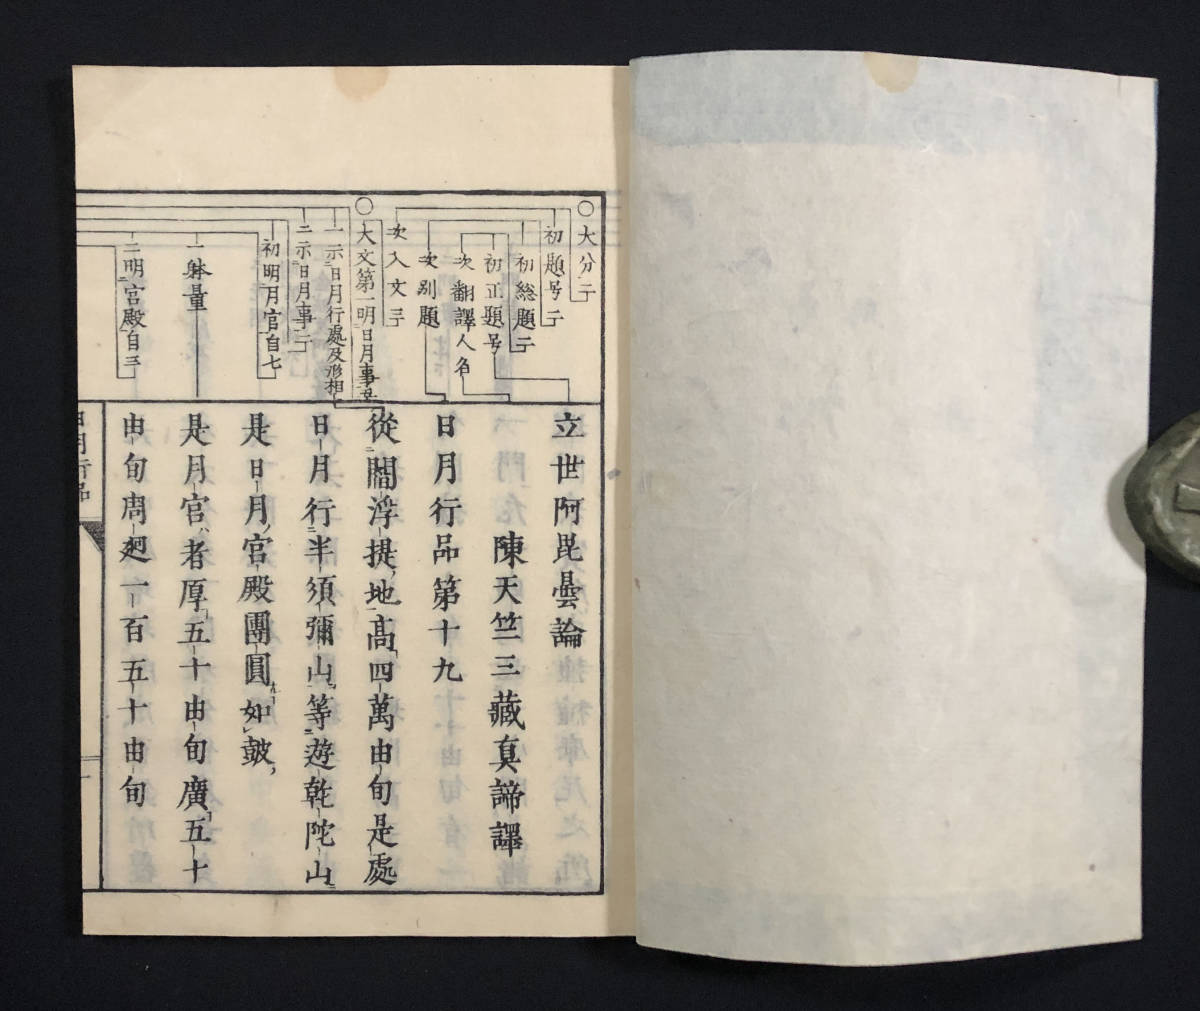 ○大分二
初題号二
初総題二
初正題号
次翻譯人名
次别題
次入文三
○大文第一明日月事五
一示日月行處及形相七
二示日月事二
初明月官自七
一躰量
二明宮殿自三
立世阿毘曇論
陳天竺三藏真諦譯
日月行品第十九
從閻浮提地高四萬由旬是處
日月行半須彌山等遊乾陀山
是日月宮殿團圓如皷
是月宮者厚五十由旬廣五十
由旬周𢌞一百五十由旬
日月行品